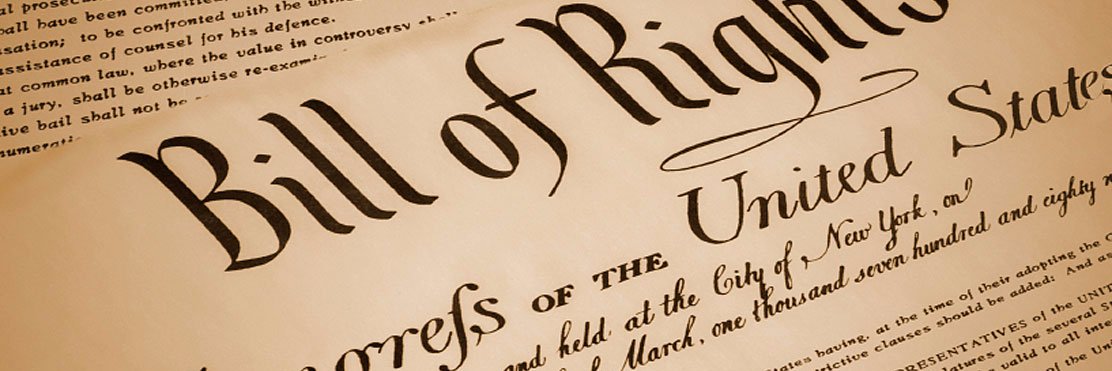 al prosecu
hall have been committed
sation; to be confronted with the witn
assistance of counsel for his defence.
at common law, where the value in controversy shall
a jury, shall be otherwise re-exami
ive bail shall not be
numerati
Bill of Rights
ongreſs OF THE United States
and held at the City of New York, on
March, one thousand seven hundred and eighty n
tates having, at the time of their adopting the C
trictive clauses should be added: And as
PRESENTATIVES of the UNIT
latures of the several S
valid to all inte
of the Unit